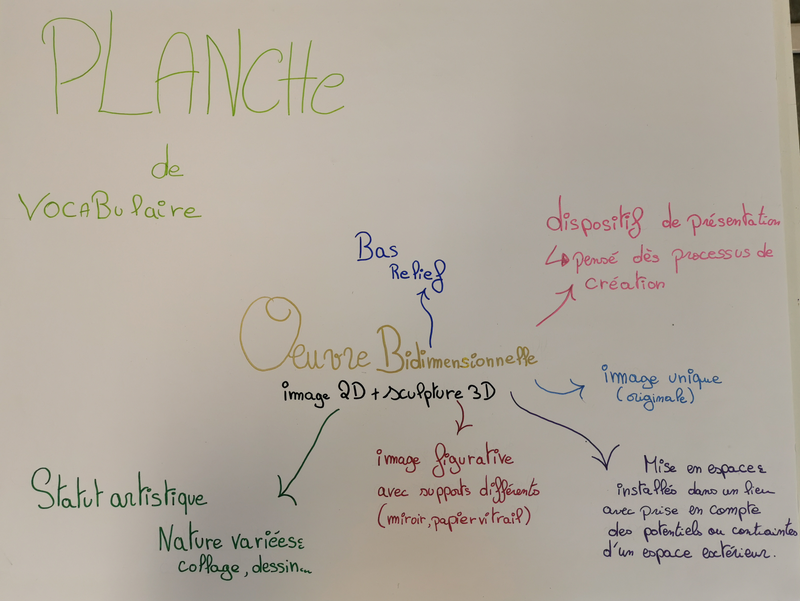 PLANCHe
de
VOCABulaire
Bas
Relief
dispositif de présentation
↳ pensé dès processus de
création
Oeuvre Bidimensionnelle
image 2D + sculpture 3D
image unique
(originale)
image figurative
avec supports différents
(miroir, papier vitrail)
Mise en espace:
installés dans un lieu
avec prise en compte
des potentiels ou contraintes
d'un espace extérieur.
Statut artistique
Nature variées:
collage, dessin...